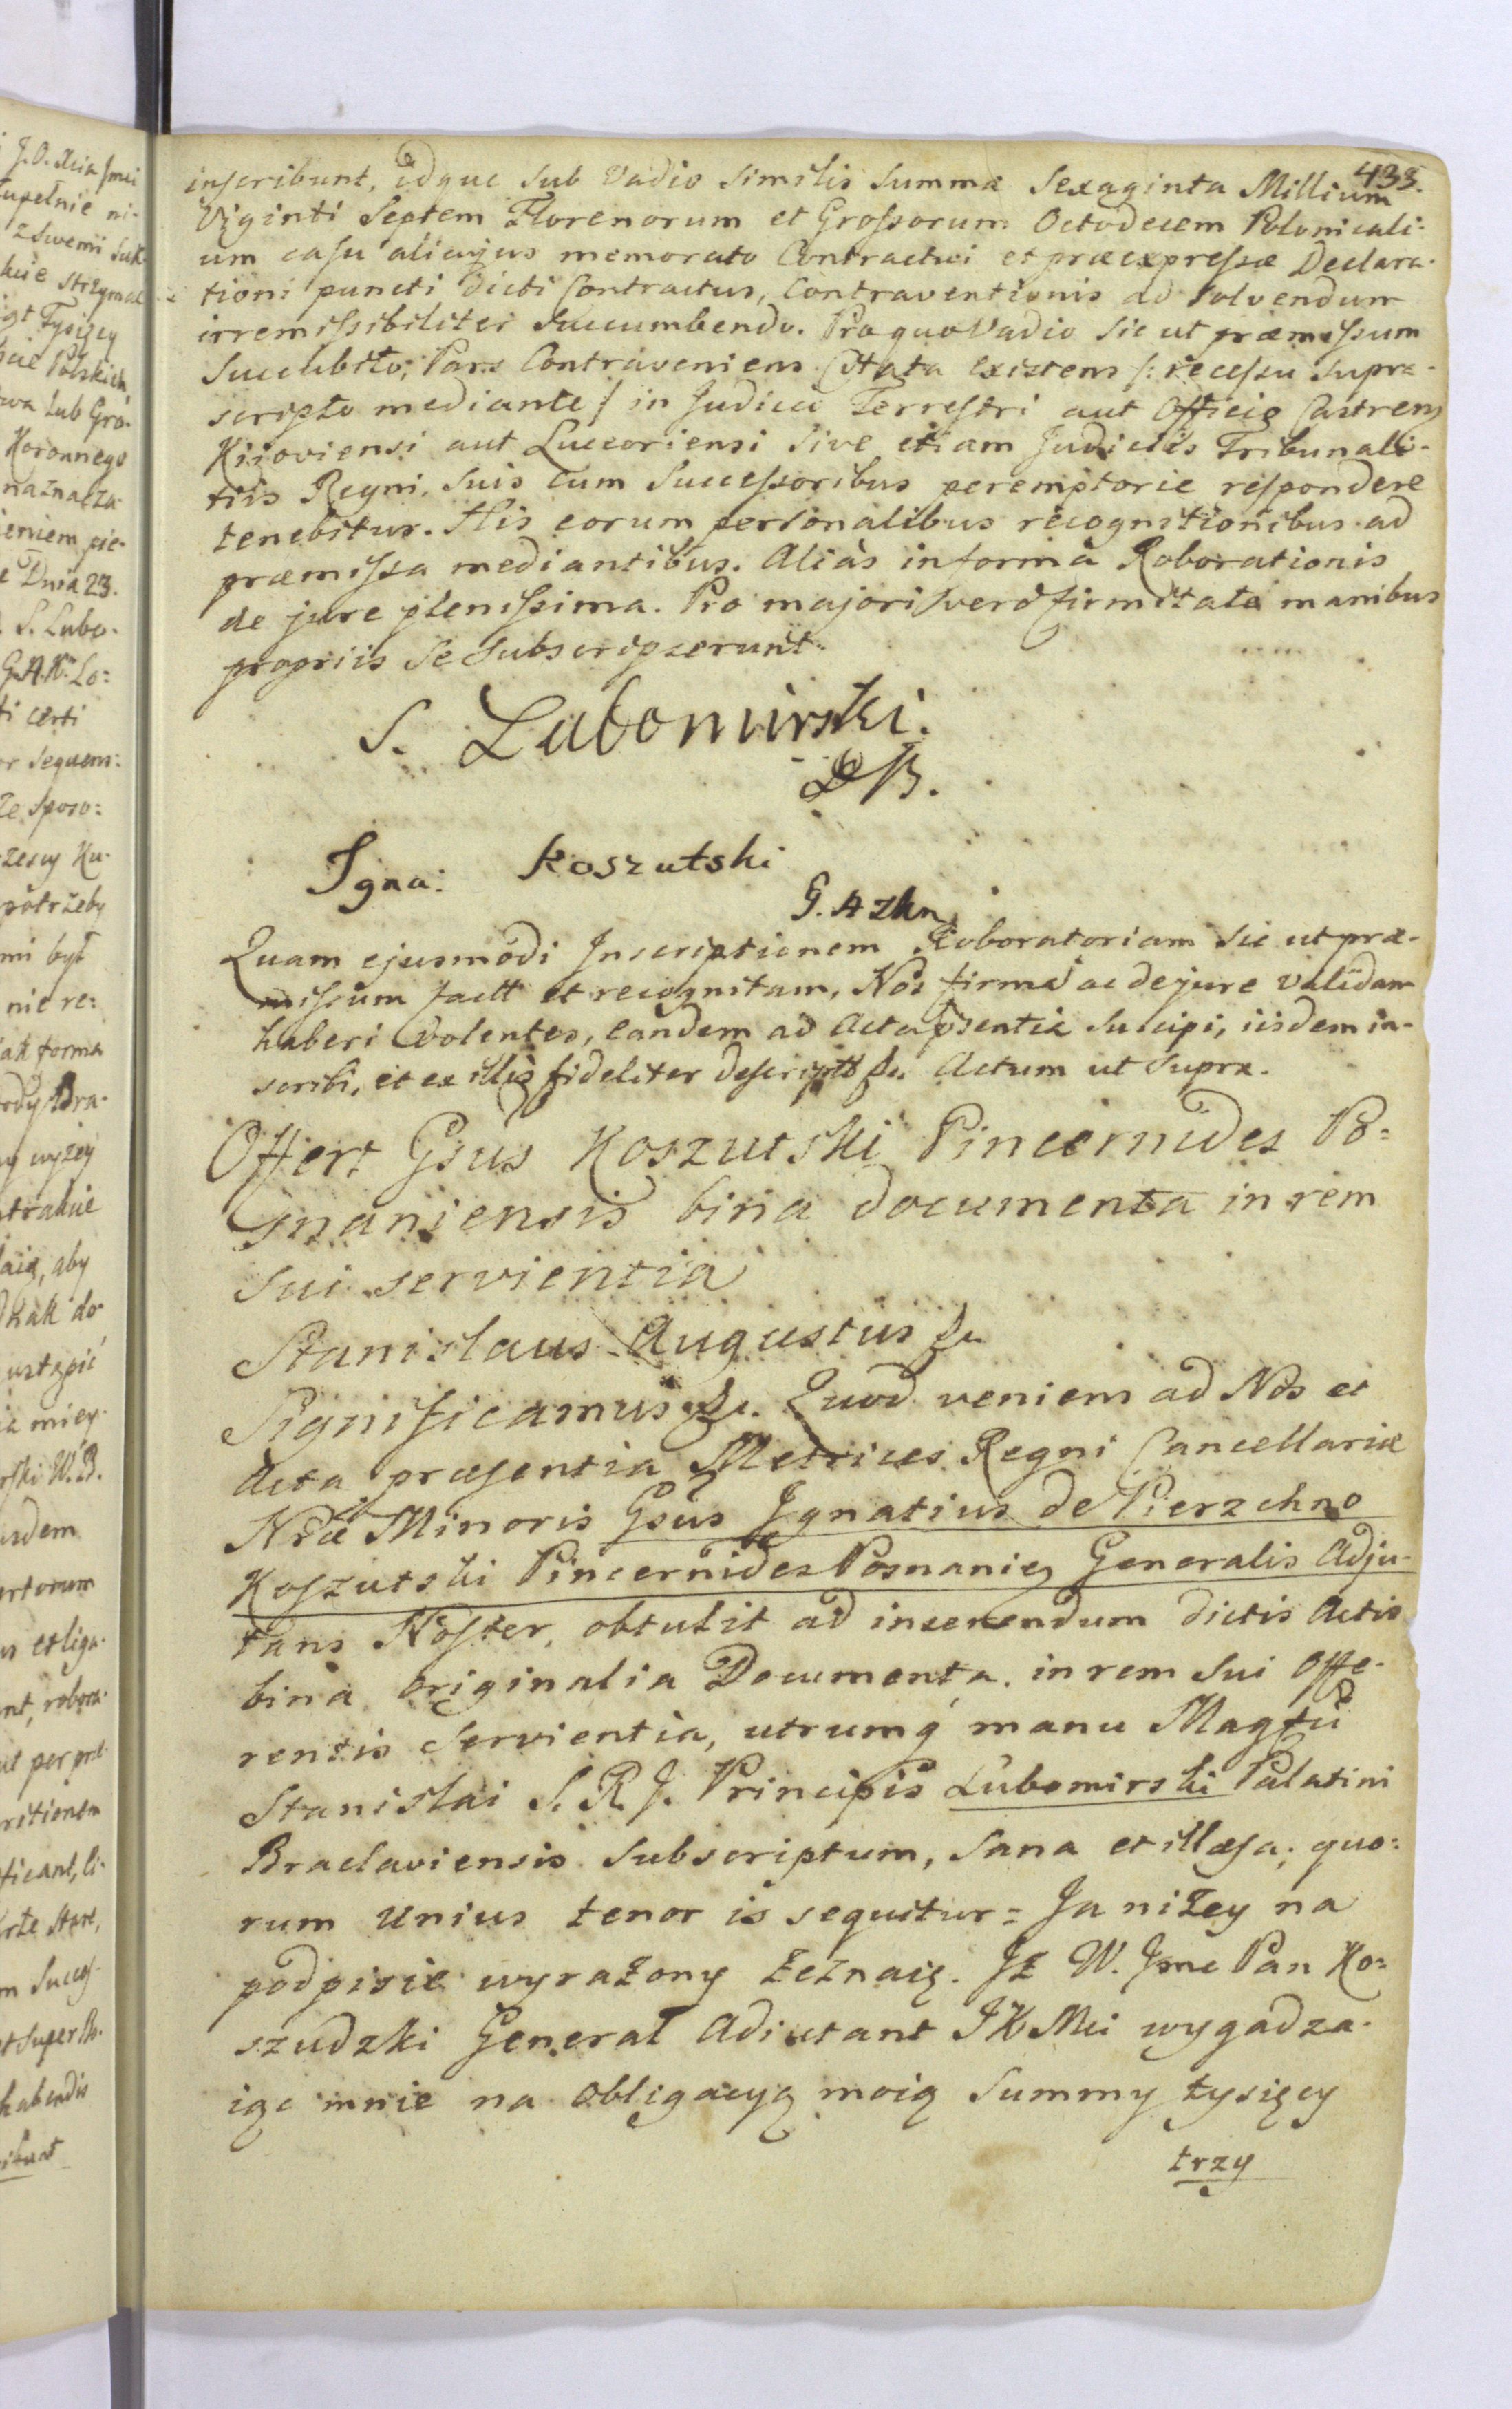 433.
inscribunt, idque sub Vadio similis summæ Sexaginta Millium
Viginti Septem Florenorum et Grossorum Octodecem Polonicali-
um casu alicujus memorato Contractui et præexpressæ Declara-
tioni puncti dicti Contractus, Contraventionis ad solvendum
irremissibiliter succumbendo. Pro quo Vadio sic ut præmissum
Succubito, Pars Contraveniens Citata existens /: recessu supra-
scripto mediante / in Judicio Terrestri aut Officio Castren
Kijoviensi aut Luceoriensi sive etiam Judiciis Tribunali-
tiis Regni, suis cum Successoribus peremptorie respondere
tenebitur. His eorum personalibus recognitionibus ad
præmissa mediantibus. Aliàs in formâ Roborationis
de jure plenissima. Pro majori vero firmitate manibus
propriis se subscripserunt.
S. Lubomirski.
WB.
Igna: Koszutski
G. A Jkm
Quam ejusmodi Inscriptionem Roboratoriam sic ut præ-
missum factt et recognitam, Nos firmã ac de jure validam
haberi volentes, eandem ad Acta psentia suscipi, iisdem in-
scribi, et ex illis fideliter descriptt &c. Actum ut supra.
Offert Gsus Koszutski Pincernides Po=
snaniensis bina documenta in rem
sui servientia
Stanislaus Augustus &c.
Significamus &c. Quod veniem ad Nos et
Acta præsentia Metrices Regni Cancellariæ
Nræ Minoris Gsus Ignatius de Pierzchno
Koszutski Pincernides Posnanien Generalis Adju-
tans Noster, obtulit ad inserendum dictis Actis
bina originalia Documenta in rem sui Offe-
rentis servientia, utrumq manu Magci
Stanislai S. R. J. Principis Lubomirski Palatini
Braclaviensis subscriptum, sana et illæsa; quo=
rum unius tenor is sequitur = Ja niżey na
podpisie wyrażony zeznaię. Jż W. Jmc Pan Ko=
szudzki Generał Adiutant JKMci wygadza-
iąc mnie na Obligacyą moią Summy tysięcy
trzy